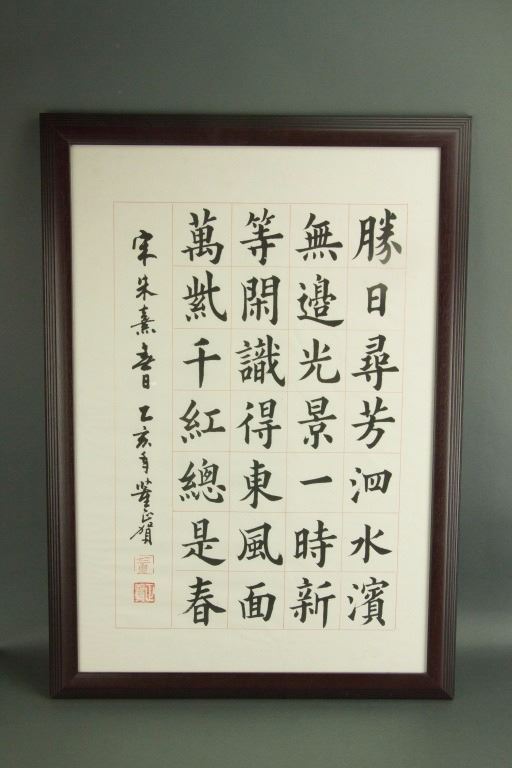 勝日尋芳泗水濱
無邊光景一時新
等閑識得東風面
萬紫千紅總是春
宋朱熹春日乙亥年董正賀